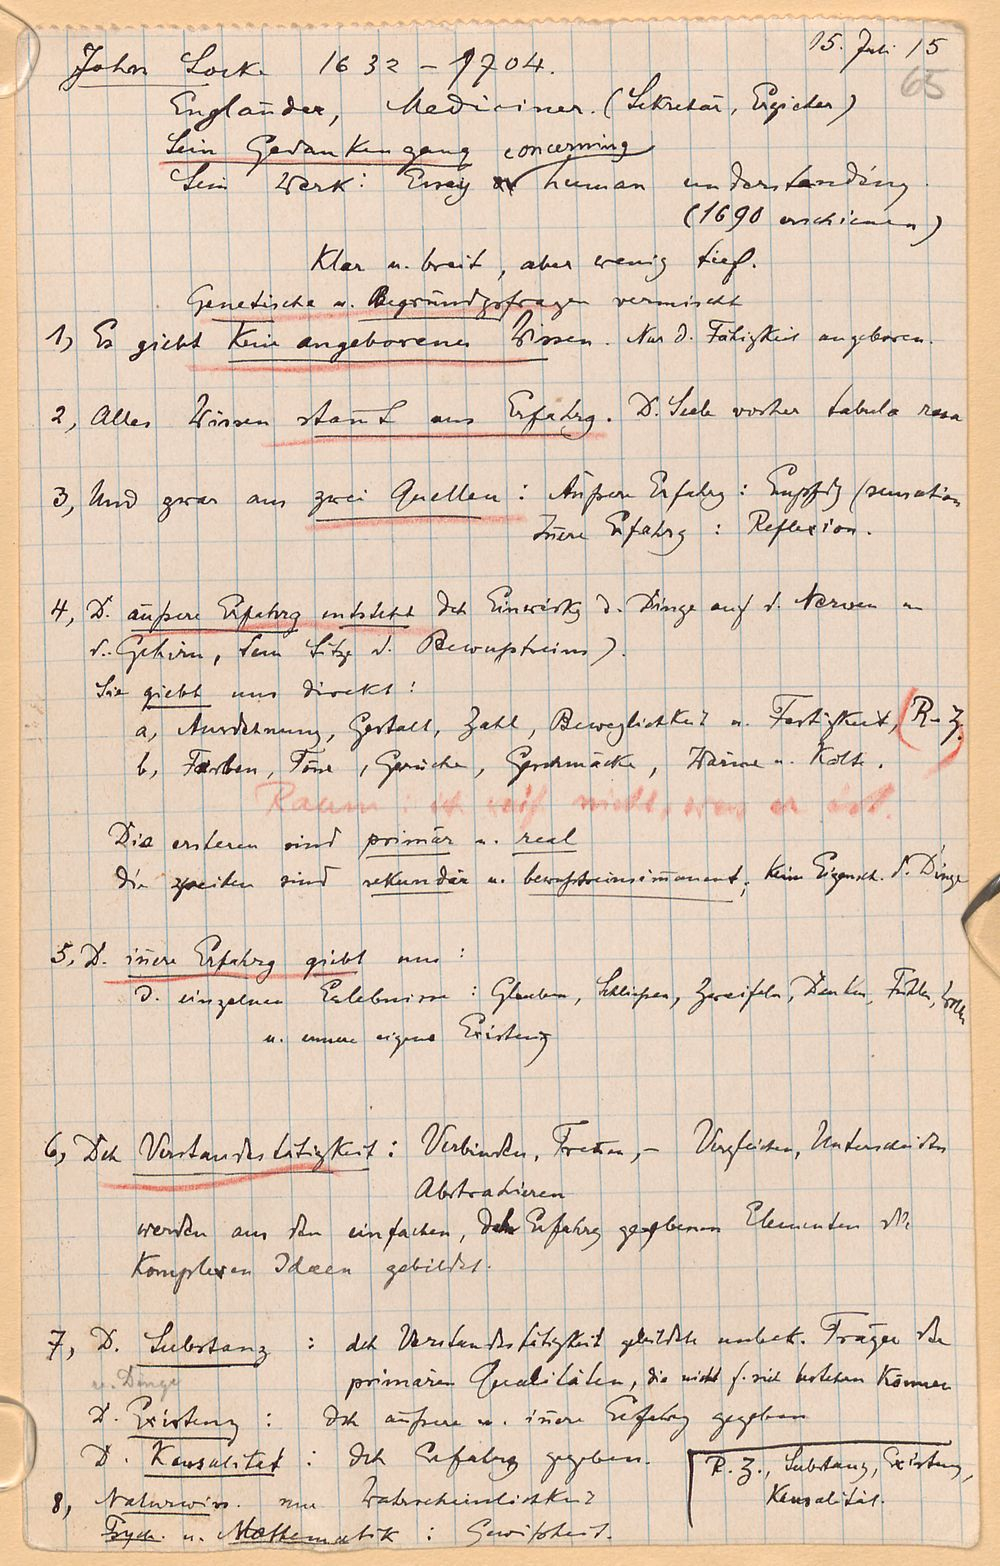 15. Juli 15
65
John Locke 1632 – 1704.
Engländer, Mediciner. (Sekretär, Erzieher)
Sein Gedankengang concerning
Sein Werk: Essay human understanding.
(1690 erschienen)
Klar u. breit, aber wenig tief.
Genetische u. Begründgsfragen vermischt
1, Es giebt kein angeborenes Wissen. Nur d. Fähigkeit angeboren.
2, Alles Wissen stam̄t aus Erfahrg. D. Seele vorher tabula rasa
3, Und zwar aus zwei Quellen: Äußere Erfahrg: Empfdg (sensation
In̄ere Erfahrg: Reflexion.
4, D. äußere Erfahrg entsteht dch Einwirkg d. Dinge auf d. Nerven u
d. Gehirn, dem Sitze d. Bewußtseins).
Sie giebt uns direkt:
a, Ausdehnung, Gestalt, Zahl, Beweglichkeit u. Festigkeit, (R-Z.)
b, Farben, Töne, Gerüche, Geschmäcke, Wärme u. Kälte.
Raum: ich weiß nicht, was er ist.
Die ersteren sind primär u. real
die zweiten sind sekundär u. bewußtseinsimmanent, keine Eigensch. d. Dinge
5, D. in̄ere Erfahrg giebt uns:
d. einzelnen Erlebnisse: Glauben, Schließen, Zweifeln, Denken, Fühlen, Wollen
u. unsere eigene Existenz
6, Dch Verstandestätigkeit: Verbinden, Tren̄en, – Vergleichen, Unterscheiden
Abstrahieren
werden aus den einfachen, dch Erfahrg gegebenen Elementen die
Komplexen Ideen gebildet.
7, D. Substanz: dch Verstandestätigkeit gebildete unbek. Träger der
primären Qualitäten, die nicht f. sich bestehen können
u. Dinge
D. Existenz: dch äußere u. in̄ere Erfahrg gegeben
D. Kausalität: dch Erfahrg gegeben.
R. Z., Substanz, Existenz,
Kausalität.
8, Naturwiss. nur Wahrscheinlichkeit
Psych. u. Mathematik: Gewißheit.